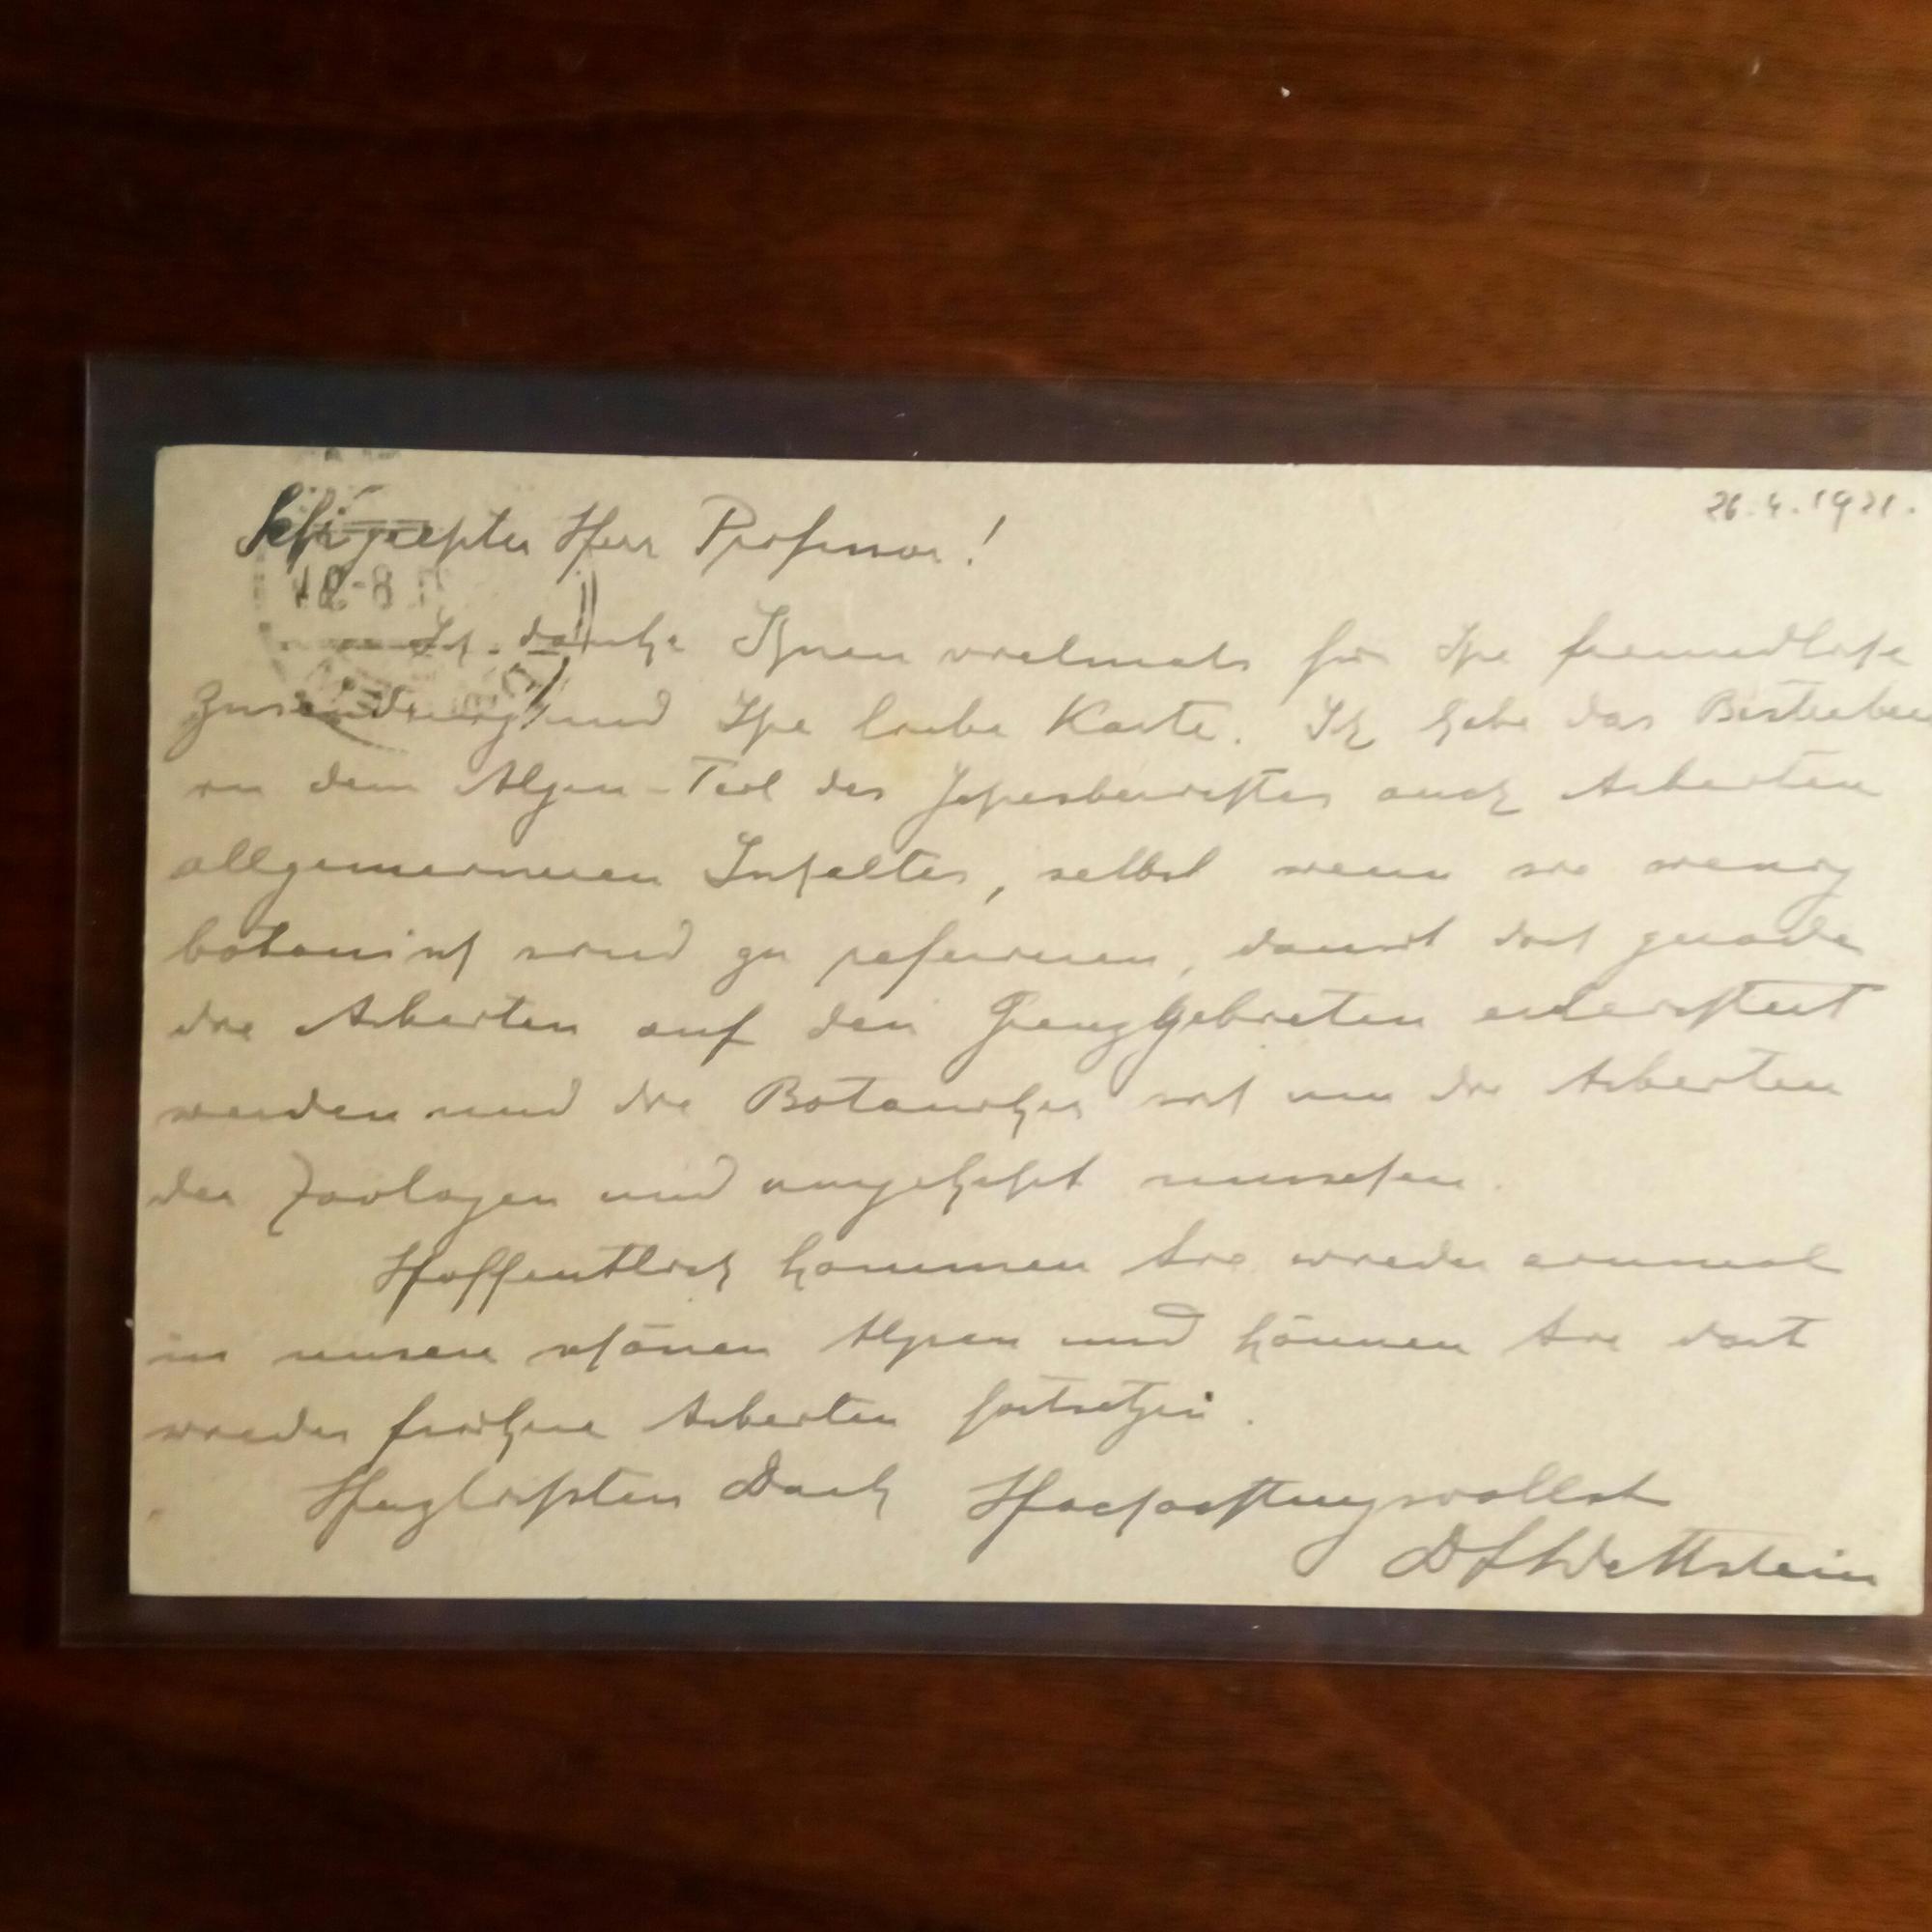 26.4.1921.
Sehr geehrter Herr Professor!
Ich danke Ihnen vielmals für Ihre freundliche
Zusendung und Ihre liebe Karte. Ich habe das Bestreben
in dem Algen-Teil des Jahresberichtes auch Arbeiten
allgemeineren Inhaltes, selbst wenn sie wenig
botanisch sind zu referieren, damit dort gerade
die Arbeiten auf den Grenzgebieten erleichtert
werden und die Botaniker sich um die Arbeiten
der Zoologen und umgekehrt
Hoffentlich kommen Sie wieder einmal
in unsere schönen Alpen und können Sie dort
wieder frühere Arbeiten fortsetzen.
Herzlichsten Dank Hochachtungsvollst
Wettstein
18-8